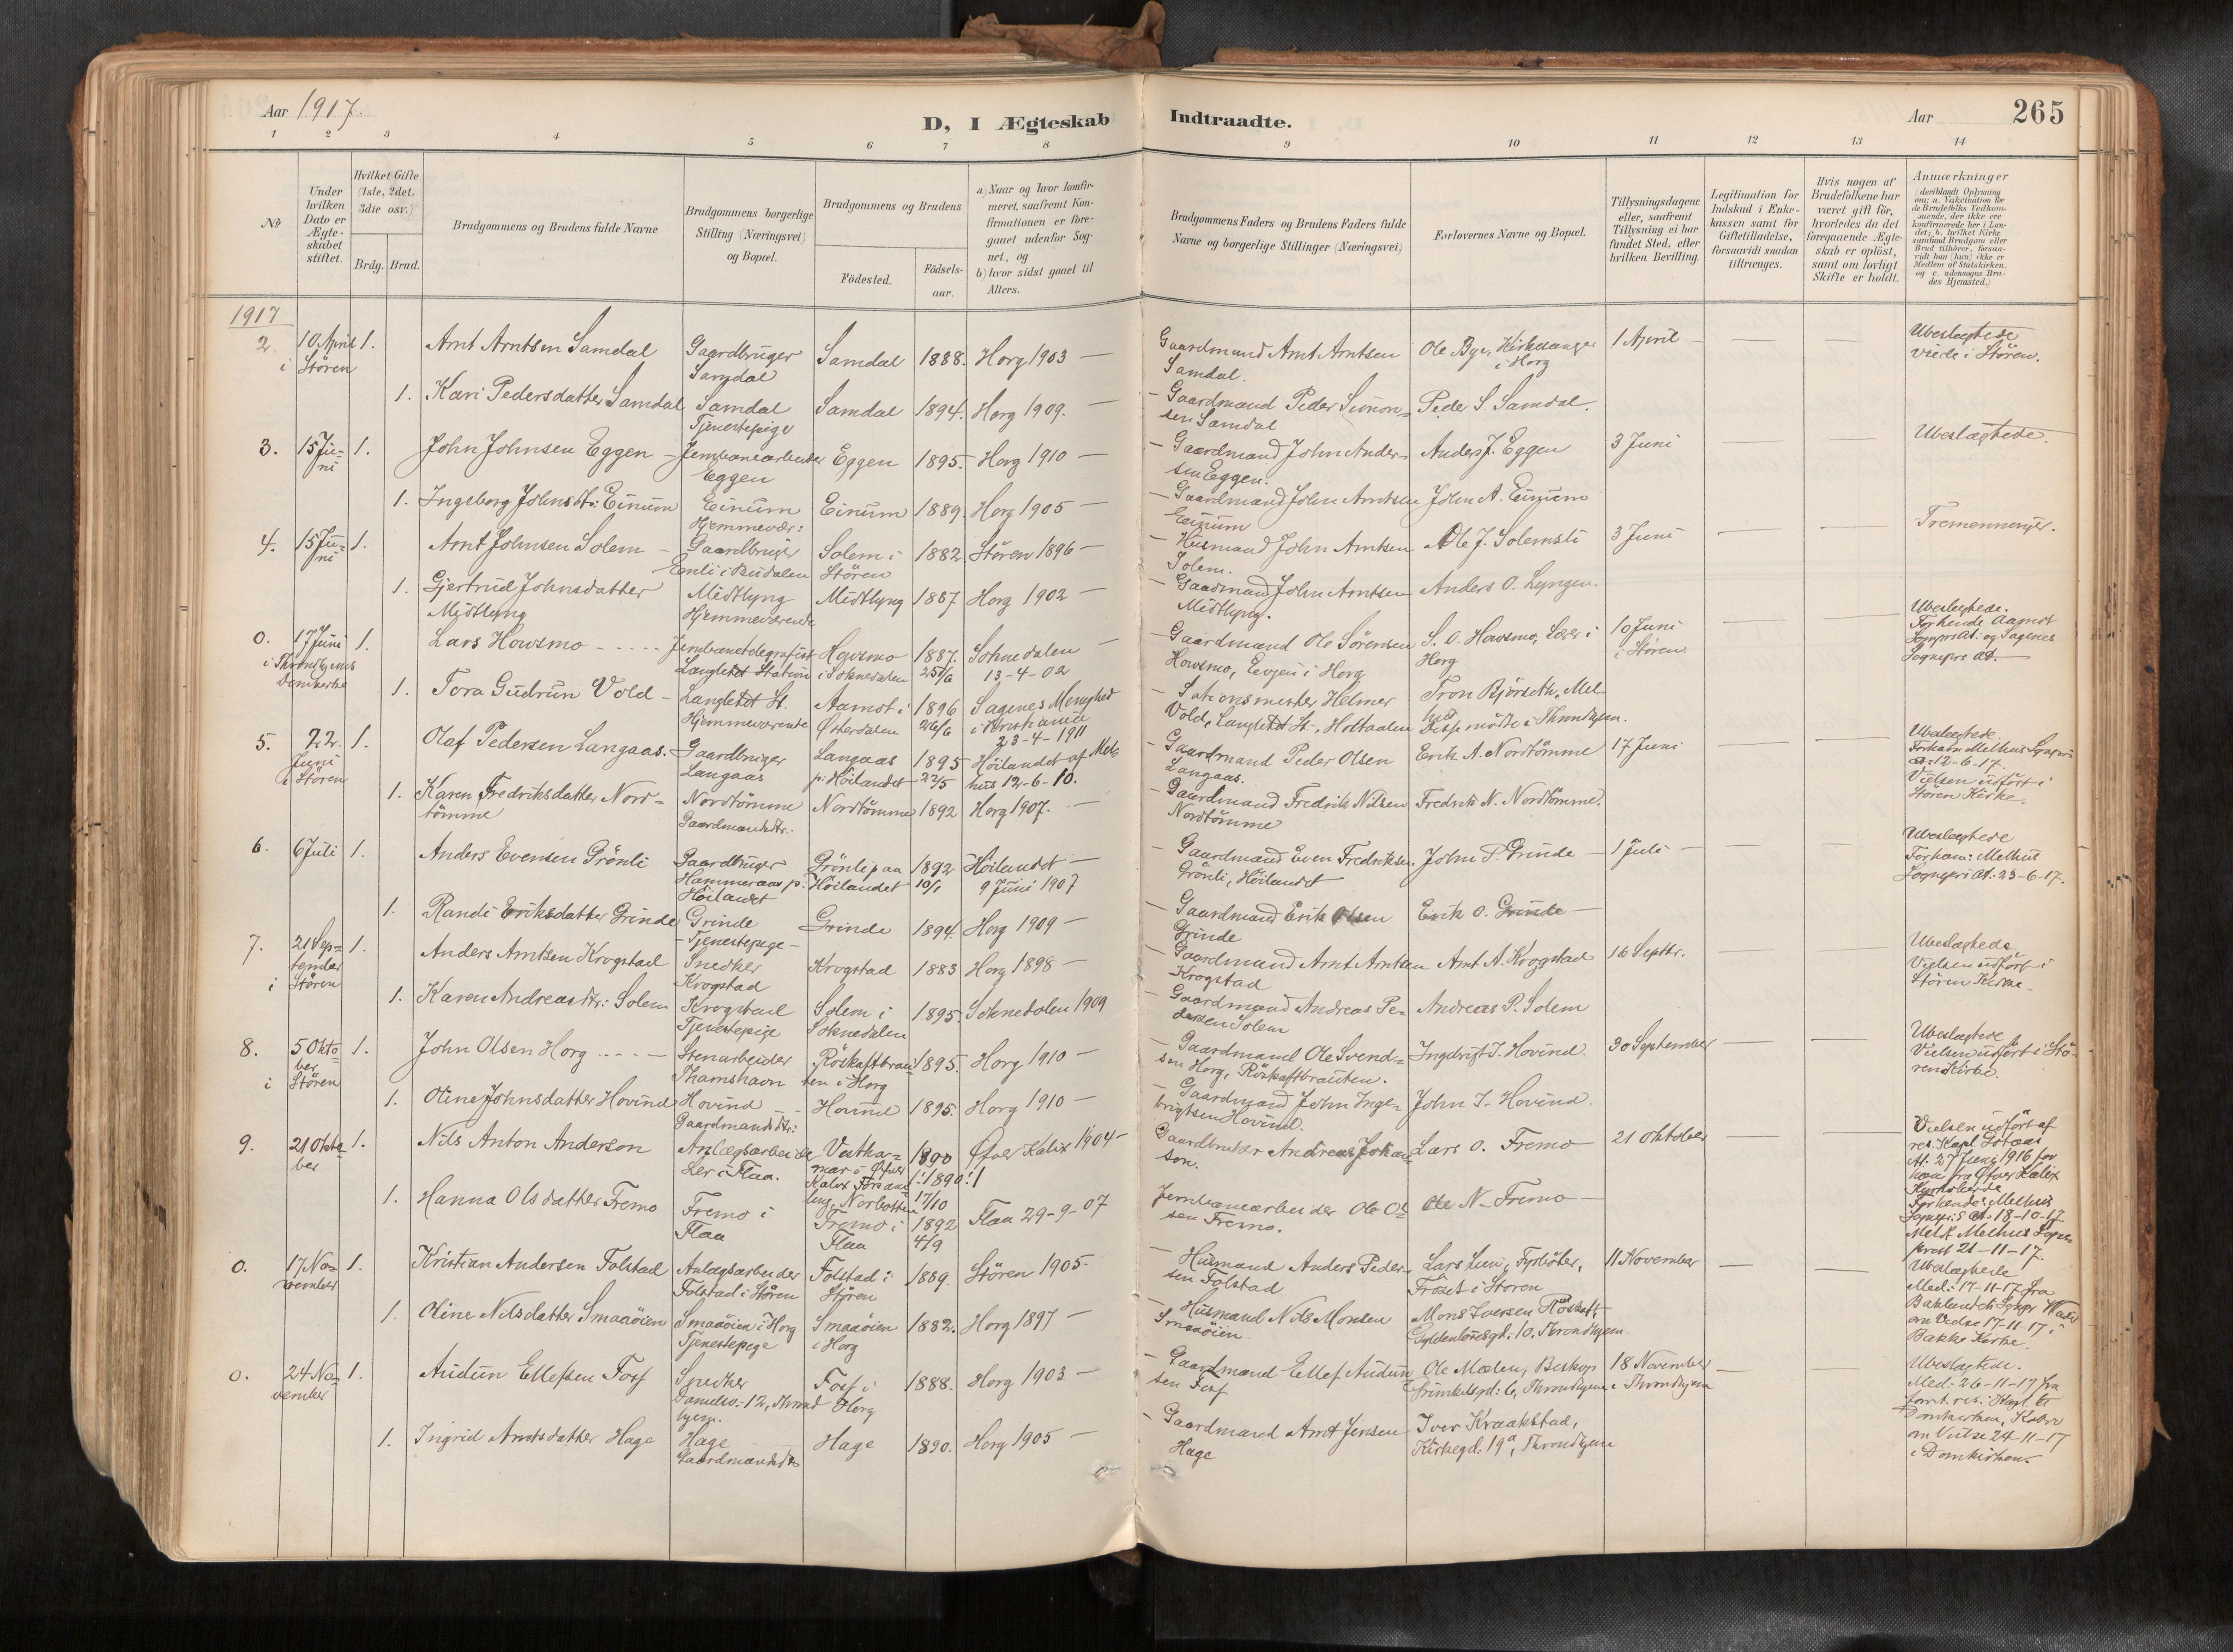 Aar 1917.
D, I Ægteskab Indtraadte.
Aar 265
1 2 3 4 5 6 7 8 9 10 11 12 13 14
No
Under hvilken Dato er Ægteskabet stiftet.
Hvilket Gifte (1ste, 2det, 3die osv.)
Brdg. Brud.
Brudgommens og Brudens fulde Navne
Brudgommens borgerlige Stilling (Næringsvei) og Bopæl.
Brudgommens og Brudens
Födested.
Födselsaar.
a) Naar og hvor konfirmeret, saafremt Konfirmationen er foregaaet udenfor Sognet, og
b) hvor sidst gaaet til Alters.
Brudgommens Faders og Brudens Faders fulde Navne og borgerlige Stillinger (Næringsvei)
Forlovernes Navne og Bopæl.
Tillysningsdagene eller, saafremt Tillysning ei har fundet Sted, efter hvilken Bevilling.
Legitimation for Indskud i Enkekassen samt for Giftetilladelse, forsaavidt saadan tiltrænges.
Hvis nogen af Brudefolkene har været gift för, hvorledes da det foregaaende Ægteskab er oplöst, samt om lovligt Skifte er holdt.
Anmærkninger
(deriblandt Oplysning om: a. Vakcination for de Brudefolks Vedkommende, der ikke ere konfirmerede her i Landet; b. hvilket Kirkesamfund Brudgom eller Brud tilhörer, forsaavidt han (hun) ikke er Medlem af Statskirken, og c. udensogns Brudes Hjemsted.)
1917
2 10 April i Stören 1. Arnt Arntsen Samdal Gaardbruger Samdal Samdal 1888. Horg 1903 — Gaardmand Arnt Arntsen Samdal. Ole Bye, i Horg 1 April — Ubeslægtede viede i Stören.
1. Kari Pedersdatter Samdal Samdal Tjenestepige Samdal 1894. Horg 1909. — Gaardmand Peder Simonsen Samdal Peder S. Samdal.
3. 15 Juni 1. John Johnsen Eggen — Jernbanearbeider Eggen Eggen 1895. Horg 1910 — Gaardmand John Andersen Eggen. Anders J. Eggen 3 Juni Ubeslægtede.
1. Ingeborg Johnsdtr: Einum Einum Hjemmevær: Einum 1889. Horg 1905 — Gaardmand John Arntsen Einum John A. Einum
4. 15 Juni 1. Arnt Johnsen Solem — Gaardbruger Enli i Budalen Solem i Stören 1882. Stören 1896 — Husmand John Arntsen Solem. Ole J. Solemsli 3 Juni Tremenninger.
1. Gjertrud Johnsdatter Midtlyng Midtlyng Hjemmeværende Midtlyng 1887 Horg 1902 — Gaardmand John Arntsen Midtlyng. Anders O. Lyngen.
0. 17 Juni i Throndhjems Domkirke 1. Lars Howsmo Jernbanetelegrafist Langletet Station Howsmo i Soknedalen 1887. 25/6 Soknedalen 13-4-02 Gaardmand Ole Sörensen Howsmo, i Horg S. O. Howsmo, Lærer i Horg 10 Juni i Stören. Ubeslægtede. Forkynde Aamot Sognepr. At. og Sagenes Sognepr. At.
1. Tora Gudrun Vold — Langletet St. Hjemmeværende Aamot i Østerdalen 1896 26/6 Sagenes Menighed i Kristiania 23-4-1911 Stationsmester Helmer Vold, Langletet St., Holtaalen Tron Björseth, Melhus i Throndhjem.
5. 22. Juni i Stören 1. Olaf Pedersen Langaas. Gaardbruger Langaas Langaas p. Höilandet 1895 22/5 Höilandet af Melhus 12-6-10. Gaardmand Peder Olsen Langaas. Erik A. Nordtömme 17 Juni Ubeslægtede. Melhus Sognepr. At. 12-6-17. Vielsen udfört i Stören Kirke.
1. Karen Fredriksdatter Nordtömme Nordtömme Gaardmandsdtr. Nordtömme 1892 Horg 1907. — Gaardmand Fredrik Nilsen Nordtömme Fredrik N. Nordtömme.
6. 6 Juli 1. Anders Evensen Grönli Gaardbruger Hammeraas p. Höilandet Grönli paa Höilandet 1892 10/1 Höilandet 9 Juni 1907 — Gaardmand Even Fredriksen Grönli, Höilandet John P. Grinde — 1 Juli — Ubeslægtede Melhus Sognepr. At. 23-6-17.
1. Randi Eriksdatter Grinde Grinde — Tjenestepige — Grinde 1894. Horg 1909 — Gaardmand Erik Olsen Grinde Erik O. Grinde —
7. 21 September i Stören 1. Anders Arntsen Krogstad Snedker Krogstad Krogstad 1883 Horg 1898 — Gaardmand Arnt Arntsen Krogstad Arnt A. Krogstad 16 Septbr. Ubeslægtede. Vielsen udfört i Stören Kirke.
1. Karen Andreasdtr: Solem Krogstad Tjenestepige Solem i Soknedalen 1895. Soknedalen 1909 Gaardmand Andreas Pedersen Solem Andreas P. Solem
8. 5 Oktober i Stören 1. John Olsen Horg — Stenarbeider Thamshavn Röskaftbrauten i Horg 1895. Horg 1910 — Gaardmand Ole Svendsen Horg, Röskaftbrauten. Ingebrigt J. Hovind 30 September Ubeslægtede Vielsen udfört i Stören Kirke.
1. Oline Johnsdatter Hovind Hovind Gaardmandsdtr: Hovind 1895. Horg 1910 — Gaardmand John Ingebrigtsen Hovind. John I. Hovind.
9. 21 Oktober 1. Nils Anton Anderson Anlægsarbeider Ler i Flaa. i Öfver Kalix Norbotten 1890 !:1890:! 17/10 Öfver Kalix 1904 — Gaardbruker Andreas Johanson. Lars O. Fremo 21 Oktober Vielsen udfört af res. Kapl. At. 27 Juni 1916 for ham fra Öfver Kalix Melhus Sognepr.s At. 18-10-17. Meldt Melhus Sogneprest 21-11-17.
1. Hanna Olsdatter Fremo Fremo i Flaa Fremo i Flaa 1892 4/9 Flaa 29-9-07 Jernbanearbeider Ole Olsen Fremo. Ole N. Fremo —
0. 17 November 1. Kristian Andersen Folstad Anlægsarbeider Folstad i Stören Folstad i Stören 1889. Stören 1905. Husmand Anders Pedersen Folstad Lars Lien, Fyrböter, Fröset i Stören 11 November Ubeslægtede Med. 17-11-17 fra Baklandets Sognepr. om Vielse 17-11-17 i Bakke Kirke.
1. Oline Nilsdatter Smaaöien Smaaöien i Horg Tjenestepige Smaaöien i Horg 1882. Horg 1897 — Husmand Nils Monsen Smaaöien Mons Iversen Röskaft, Gyldenlövesgd. 10, Throndhjem
0. 24 November 1. Audun Ellefsen Foss Snedker 12, Throndhjem. Foss i Horg 1888. Horg 1903 — Gaardmand Ellef Audunsen Foss Ole Moelen, Biskop Grimkelsgd: 6, Throndhjem 18 November i Throndhjem Ubeslægtede. Med. 26-11-17 fra Domkirken, om Vielse 24-11-17 i Domkirken.
1. Ingrid Arntsdatter Hage Hage Gaardmandsdtr Hage 1890. Horg 1905 — Gaardmand Arnt Jensen Hage Iver Kraakstad, Kirkegd. 19a, Throndhjem